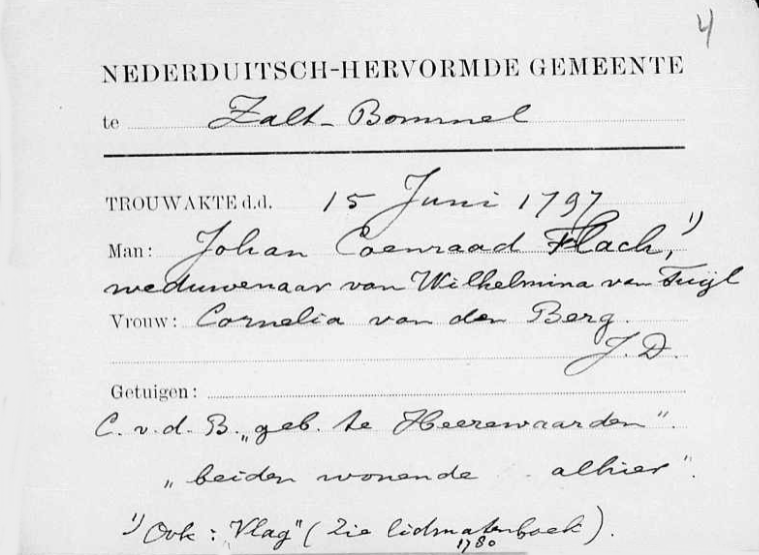 4
NEDERDUITSCH-HERVORMDE GEMEENTE
te Zalt-Bommel
TROUWAKTE d.d. 15 Juni 1797
Man: Johan Coenraad Flach, 1)
weduwenaar van Wilhelmina van Tuijl
Vrouw: Cornelia van den Berg.
J.D.
Getuigen:
C. v. d. B. „geb. te Heerewaarden".
„beiden wonende alhier".
1) Ook: „Vlag" (Zie lidmatenboek).
1780